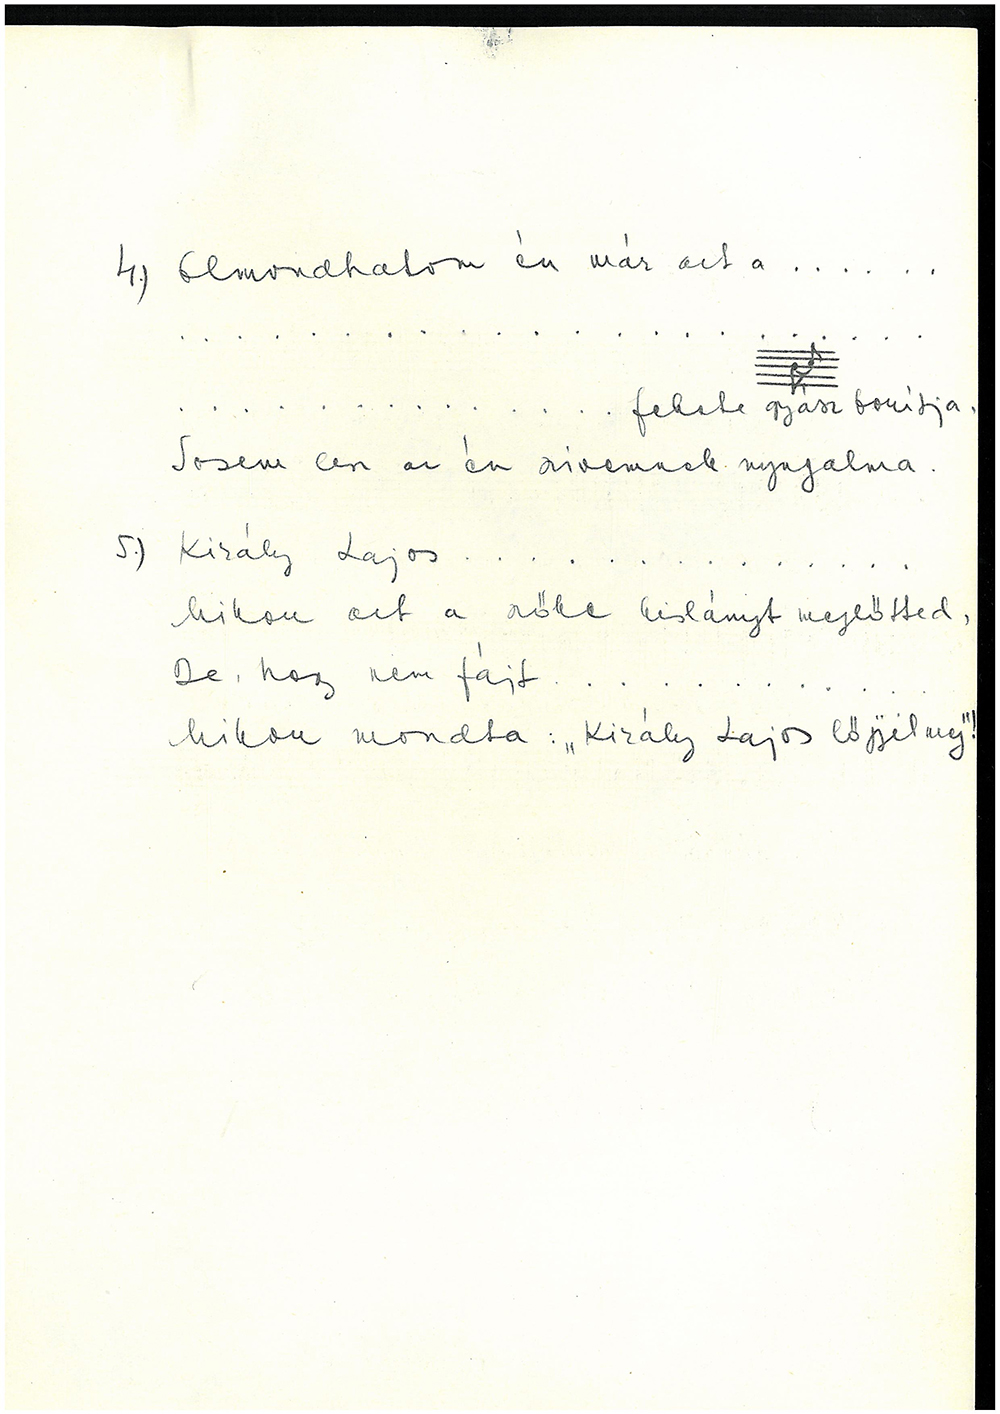 4.) Elmondhatom én már azt a . . . . . . .
. . . . . . . . . . . . . . . . . . . .
. . . . . . . . . . . . . . fekete gyász borítja.
Sosem lesz az én szivemnek nyugalma.
5.) Király Lajos . . . . . . . . . . . . .
Mikou azt a szőke kislányt meglőtted,
De, hogy nem fájt . . . . . . . . . . .
Mikou mondta: „Király Lajos lőjjél meg"!